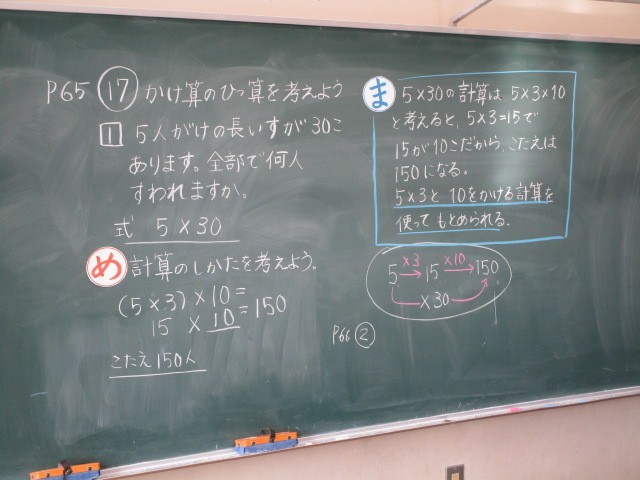 P65 ⑰ かけ算のひっ算を考えよう
1 5人がけの長いすが30こ
あります。全部で何人
すわれますか。
式 5×30
め 計算のしかたを考えよう。
(5×3)×10=
15×10=150
こたえ150人
ま 5×30の計算は 5×3×10
と考えると、5×3=15で
15が10こだから、こたえは
150になる。
5×3と 10をかける計算を
使って もとめられる。
5 ×3 15 ×10 150
×30
P66 ②